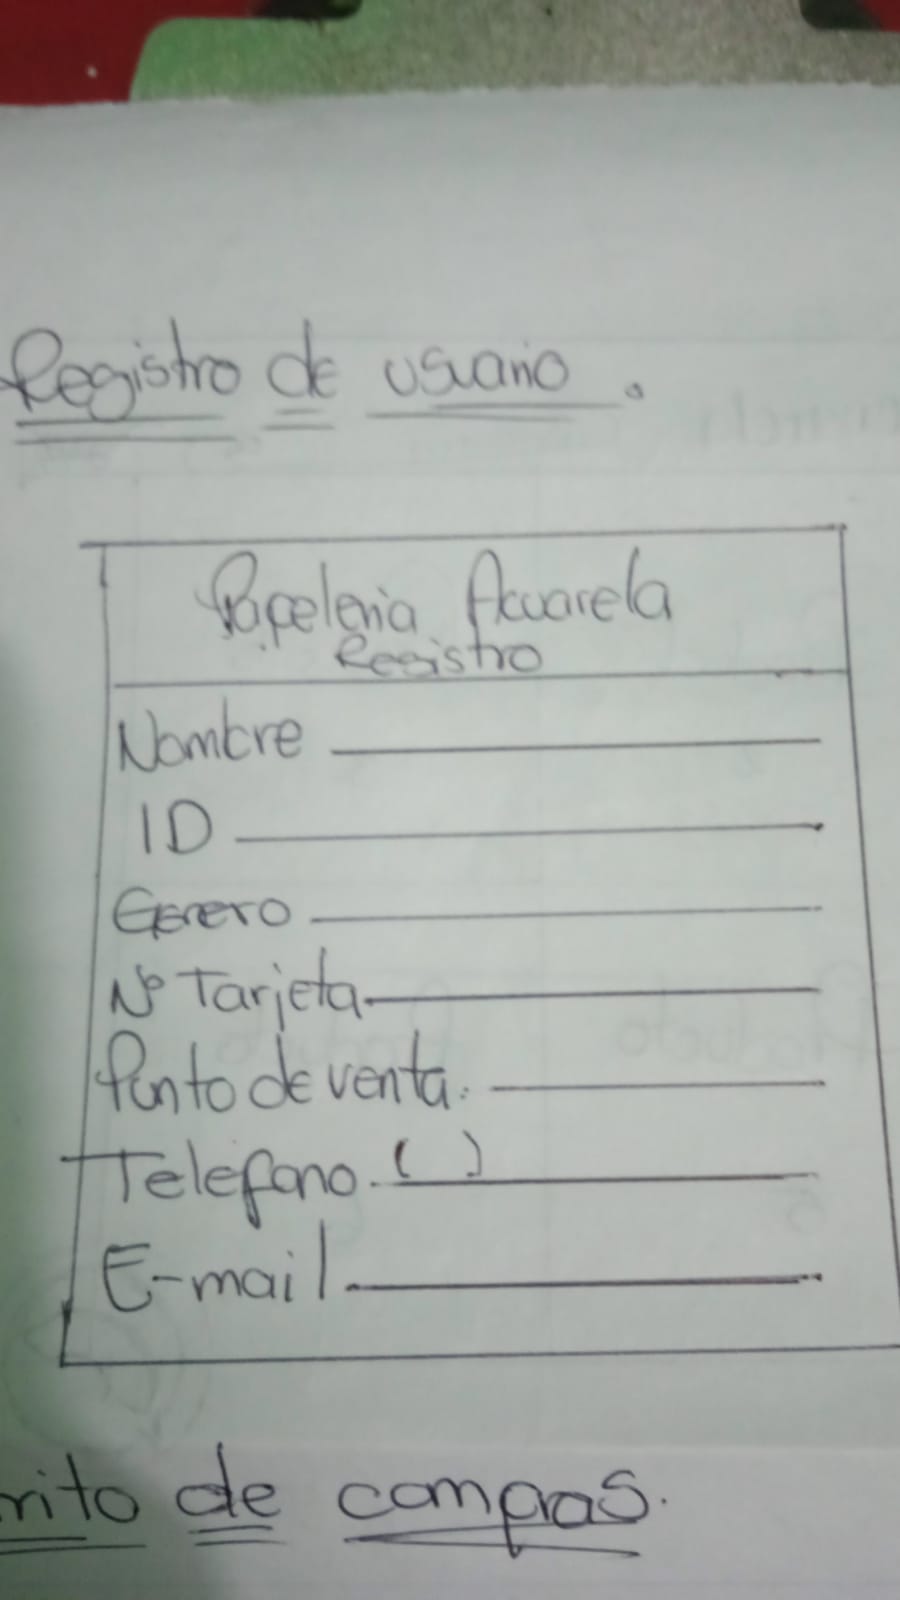 Registro de usuario.
Papeleria Acuarela
Registro
Nombre
ID
Genero
Nº Tarjeta
Punto de venta.
Telefono. ( )
E-mail
rito de compras.